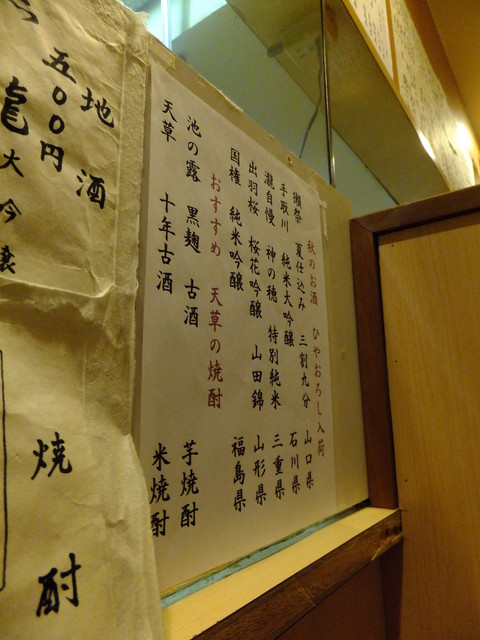 秋のお酒 ひやおろし入荷
獺祭 夏仕込み 三割九分 山口県
手取川 純米大吟醸 石川県
瀧自慢 神の穂 特別純米 三重県
出羽桜 桜花吟醸 山田錦 山形県
国権 純米吟醸 福島県
おすすめ 天草の焼酎
池の露 黒麹 古酒 芋焼酎
天草 十年古酒 米焼酎
地酒
五〇〇円
龍大吟醸
焼酎